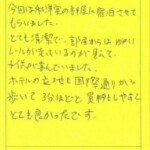 今回は航洋室の部屋に宿泊させて
もらいました。
とても清潔で、部屋からは ゆい
レールが走っているのが見えて、
子供が喜んでいました。
ホテルの立地も国際通りから
歩いて3分ほどと 買物もしやすく
とても良かったです。